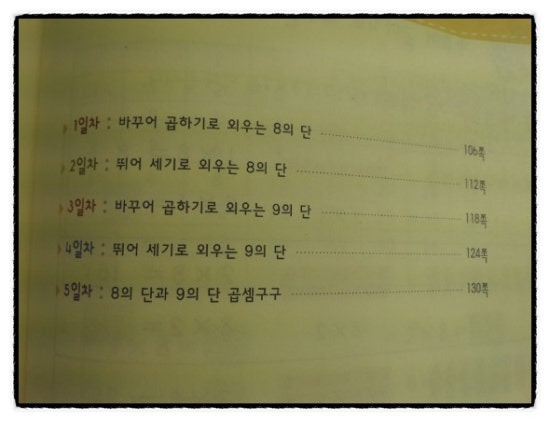 1일차 : 바꾸어 곱하기로 외우는 8의 단 106쪽
2일차 : 뛰어 세기로 외우는 8의 단 112쪽
3일차 : 바꾸어 곱하기로 외우는 9의 단 118쪽
4일차 : 뛰어 세기로 외우는 9의 단 124쪽
5일차 : 8의 단과 9의 단 곱셈구구 130쪽